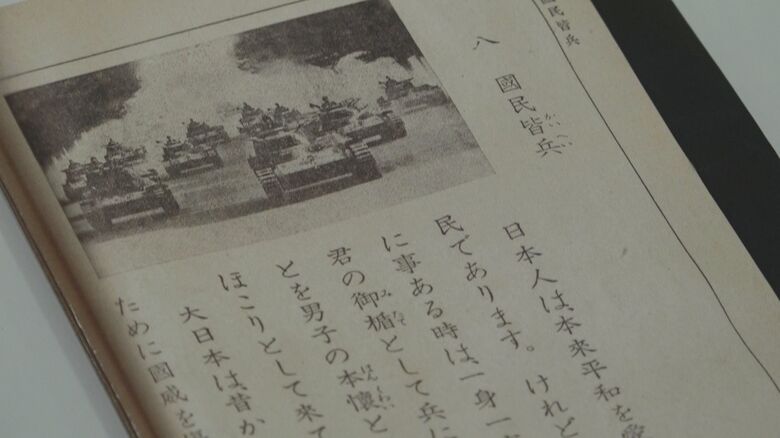 國民皆兵
八 國民皆兵
かいへい
日本人は、本來平和を愛
民であります。けれど
に事ある時は、一身一
君の御楯として兵に
みたて
とを男子の本懷と
ほんくわい
ほこりとして來て
大日本は、昔か
ために國威を